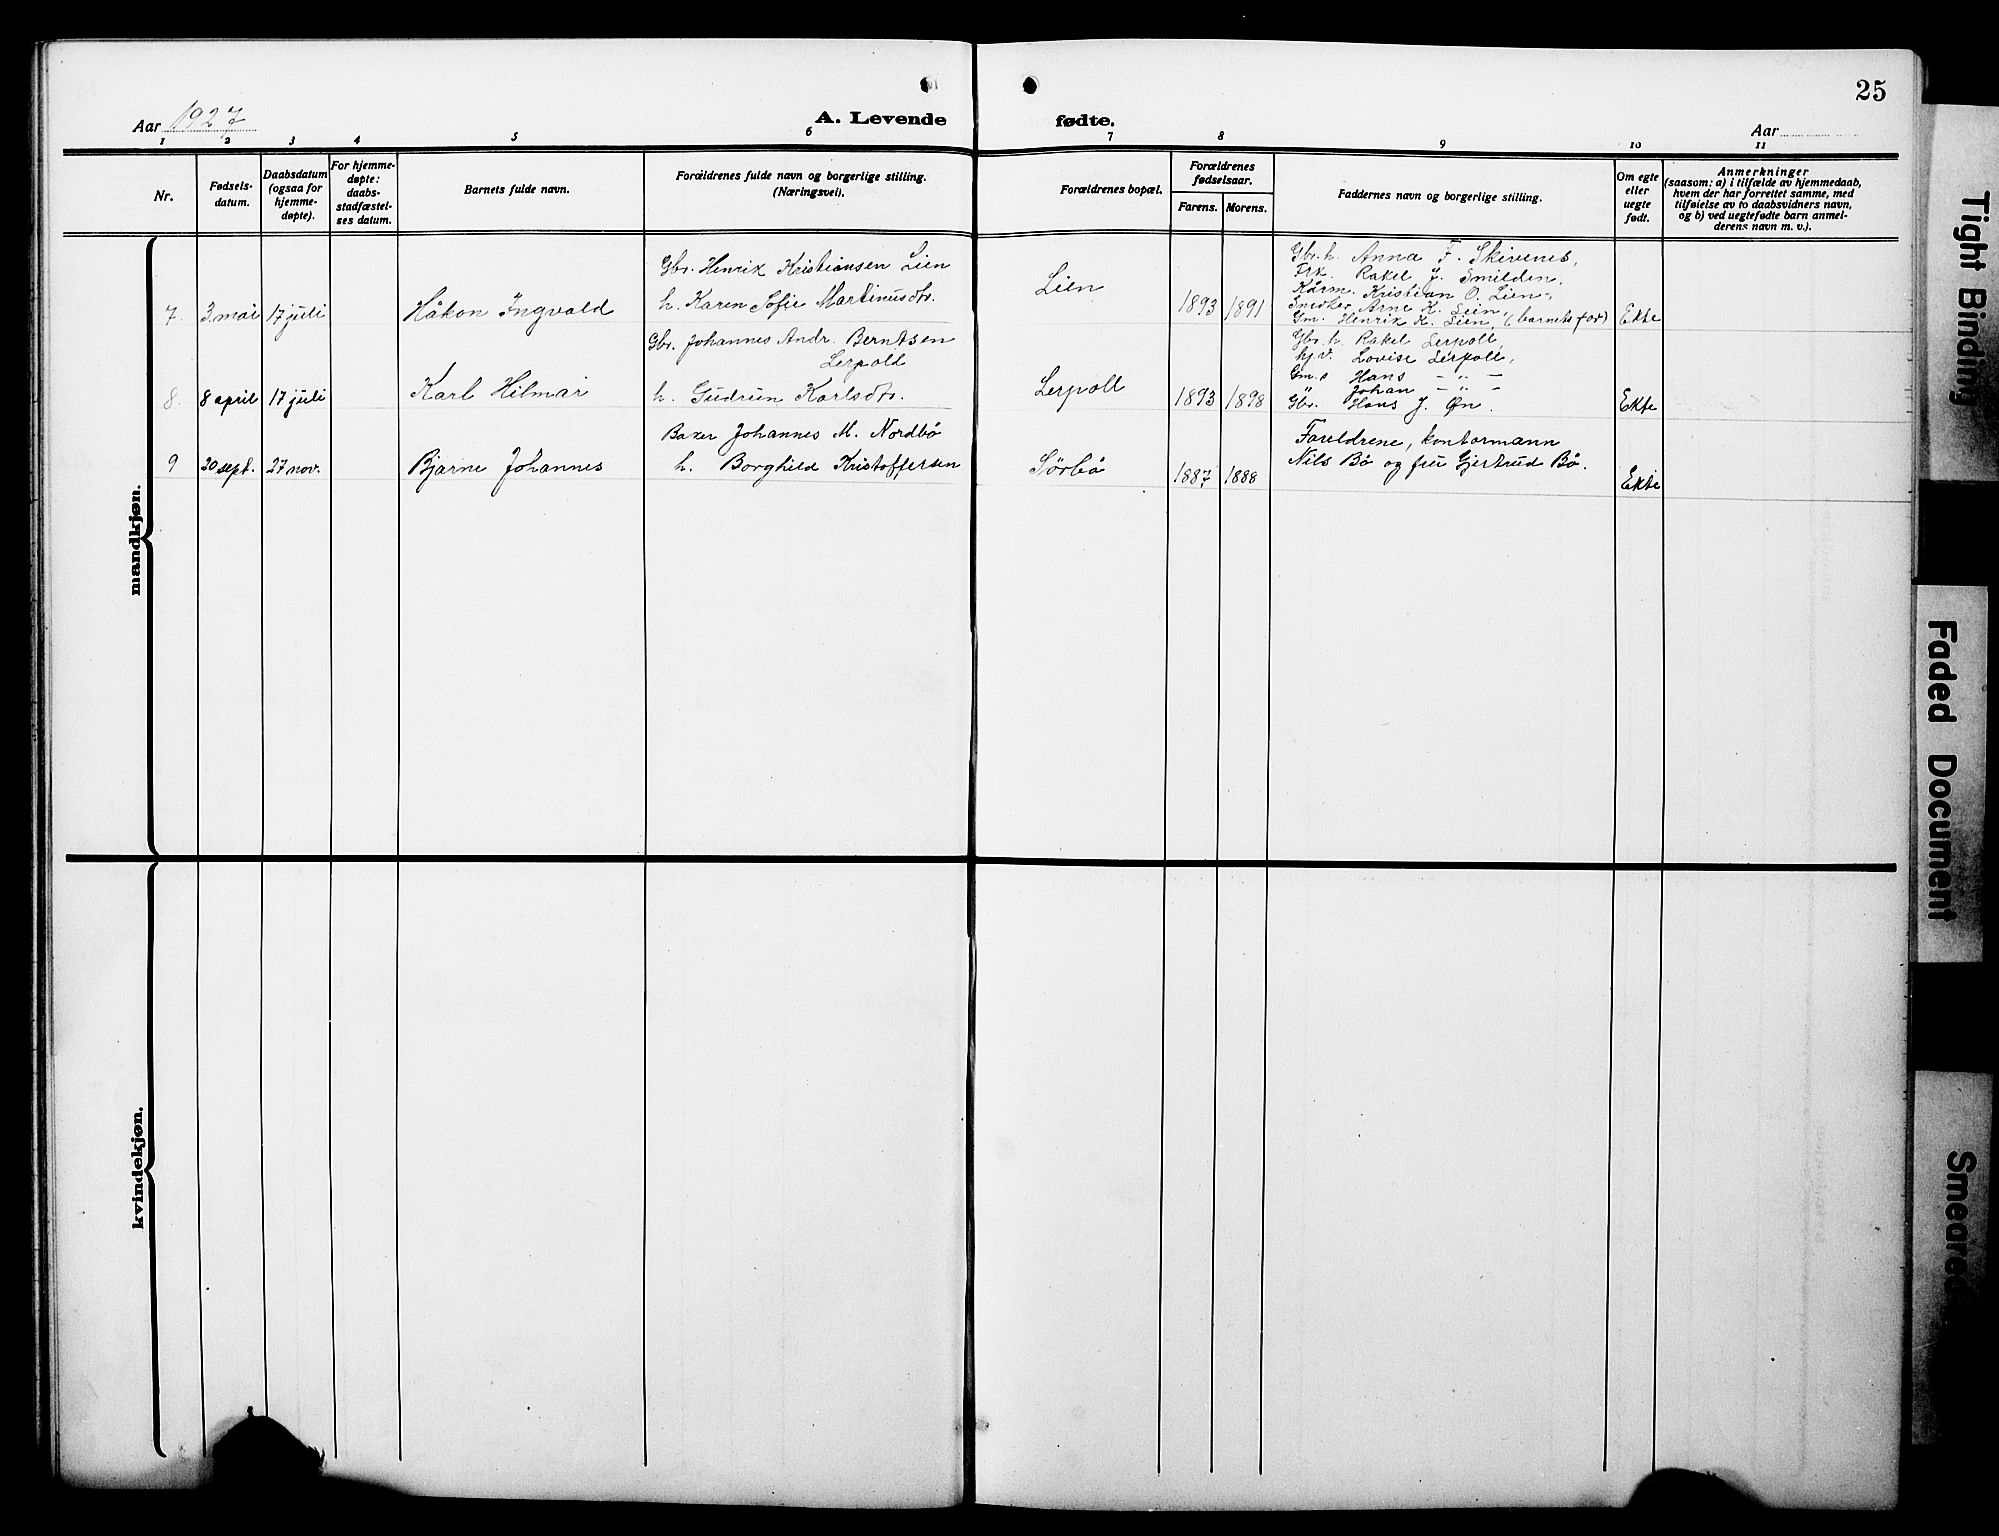 25
Aar 1927
A. Levende fødte.
Aar
1 2 3 4 5 6 7 8 9 10 11
Nr.
Fødsels-
datum.
Daabsdatum
(ogsaa for
hjemme-
døpte).
For hjemme-
døpte:
daabs-
stadfæstel-
ses datum.
Barnets fulde navn.
Forældrenes fulde navn og borgerlige stilling.
(Næringsvei).
Forældrenes bopæl.
Forældrenes
fødselsaar.
Farens. Morens.
Faddernes navn og borgerlige stilling.
Om egte
eller
uegte
født.
Anmerkninger
(saasom: a) i tilfælde av hjemmedaab,
hvem der har forrettet samme, med
tilføielse av to daabsvidners navn,
og b) ved uegtefødte barn anmel-
derens navn m. v.).
mandkjøn.
7. 3 mai 17 juli Håkon Ingvald
Gbr. Henrik Kristiansen Lien
h. Karen Sofie Martinusdtr.
Lien
1893 1891
Gbr. h. Anna F. Skivenes,
Frk. Rakel J. Smilden,
Kårm. Kristian O. Lien,
Snedker Arne K. Lien,
Gm. Henrik K. Lien, (barnets far)
Ekte
8. 8 april 17 juli Karl Hilmar
Gbr. Johannes Andr. Berntsen
Lerpold
h. Gudrun Karlsdtr.
Lerpoll
1893 1898
Gbr. h. Rakel Lerpoll,
hj.v. Lovise Lerpoll,
Gm.s Hans - " -
" Johan - " -
Gbr. Hans J. Øn.
Ekte
9 30 sept. 27 nov. Bjarne Johannes
Baker Johannes M. Nordbø
h. Borghild Kristoffersen
Sørbø
1887 1888
Foreldrene, kontormann
Nils Bø og fru Gjertrud Bø.
Ekte
kvindekjøn.
Tight Binding
Faded Document
Smeared